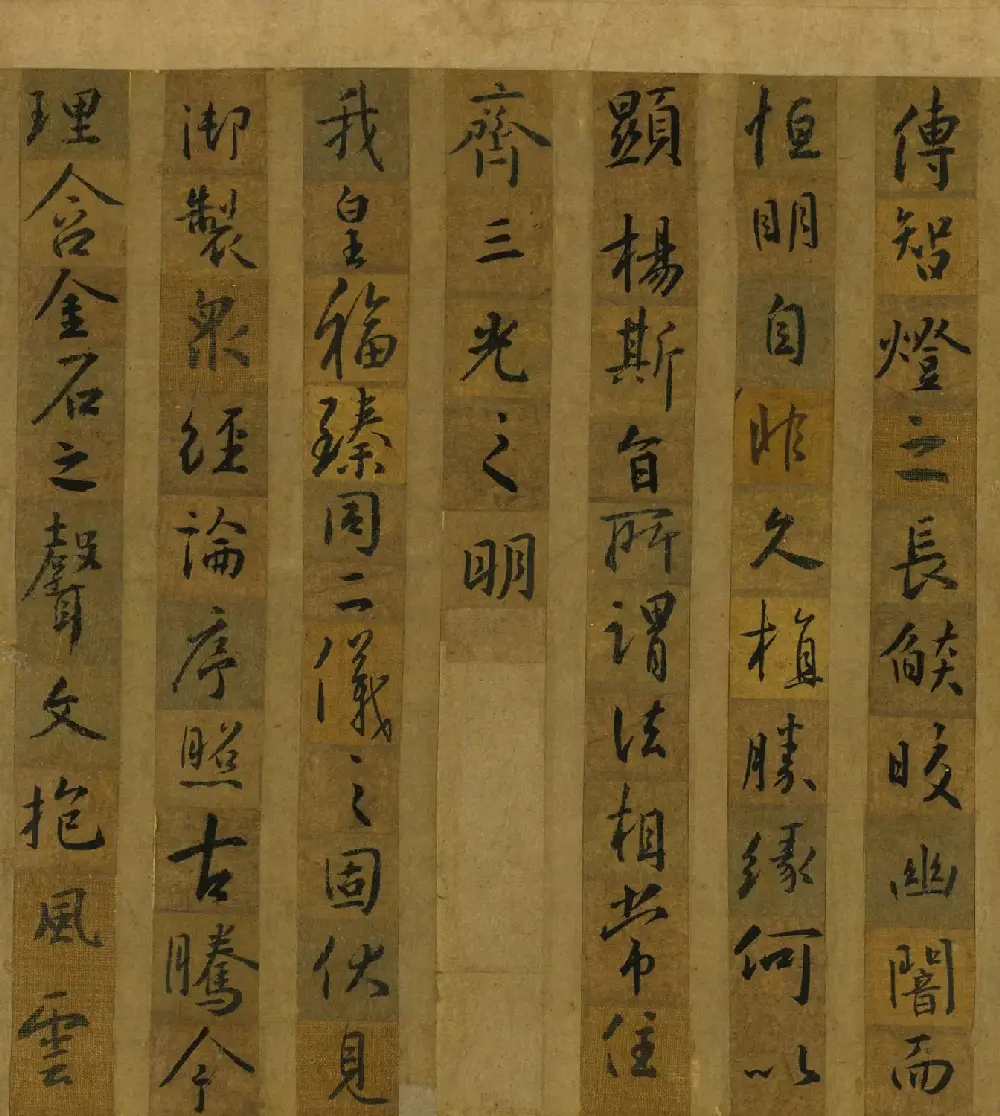 傳智燈之長燄皎幽闇而
恒明自非久植勝緣何以
顯楊斯旨所謂法相常住
齊三光之明
我皇福臻同二儀之固伏見
御製眾經論序照古騰今
理含金石之聲文抱風雲